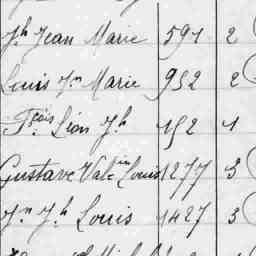 Jh Jean Marie 591 2
Louis Jn Marie 952 2
Fçois Léon Jh 152 1
Gustave Valin Louis 1277 3
Jn Jh Louis 1427 3